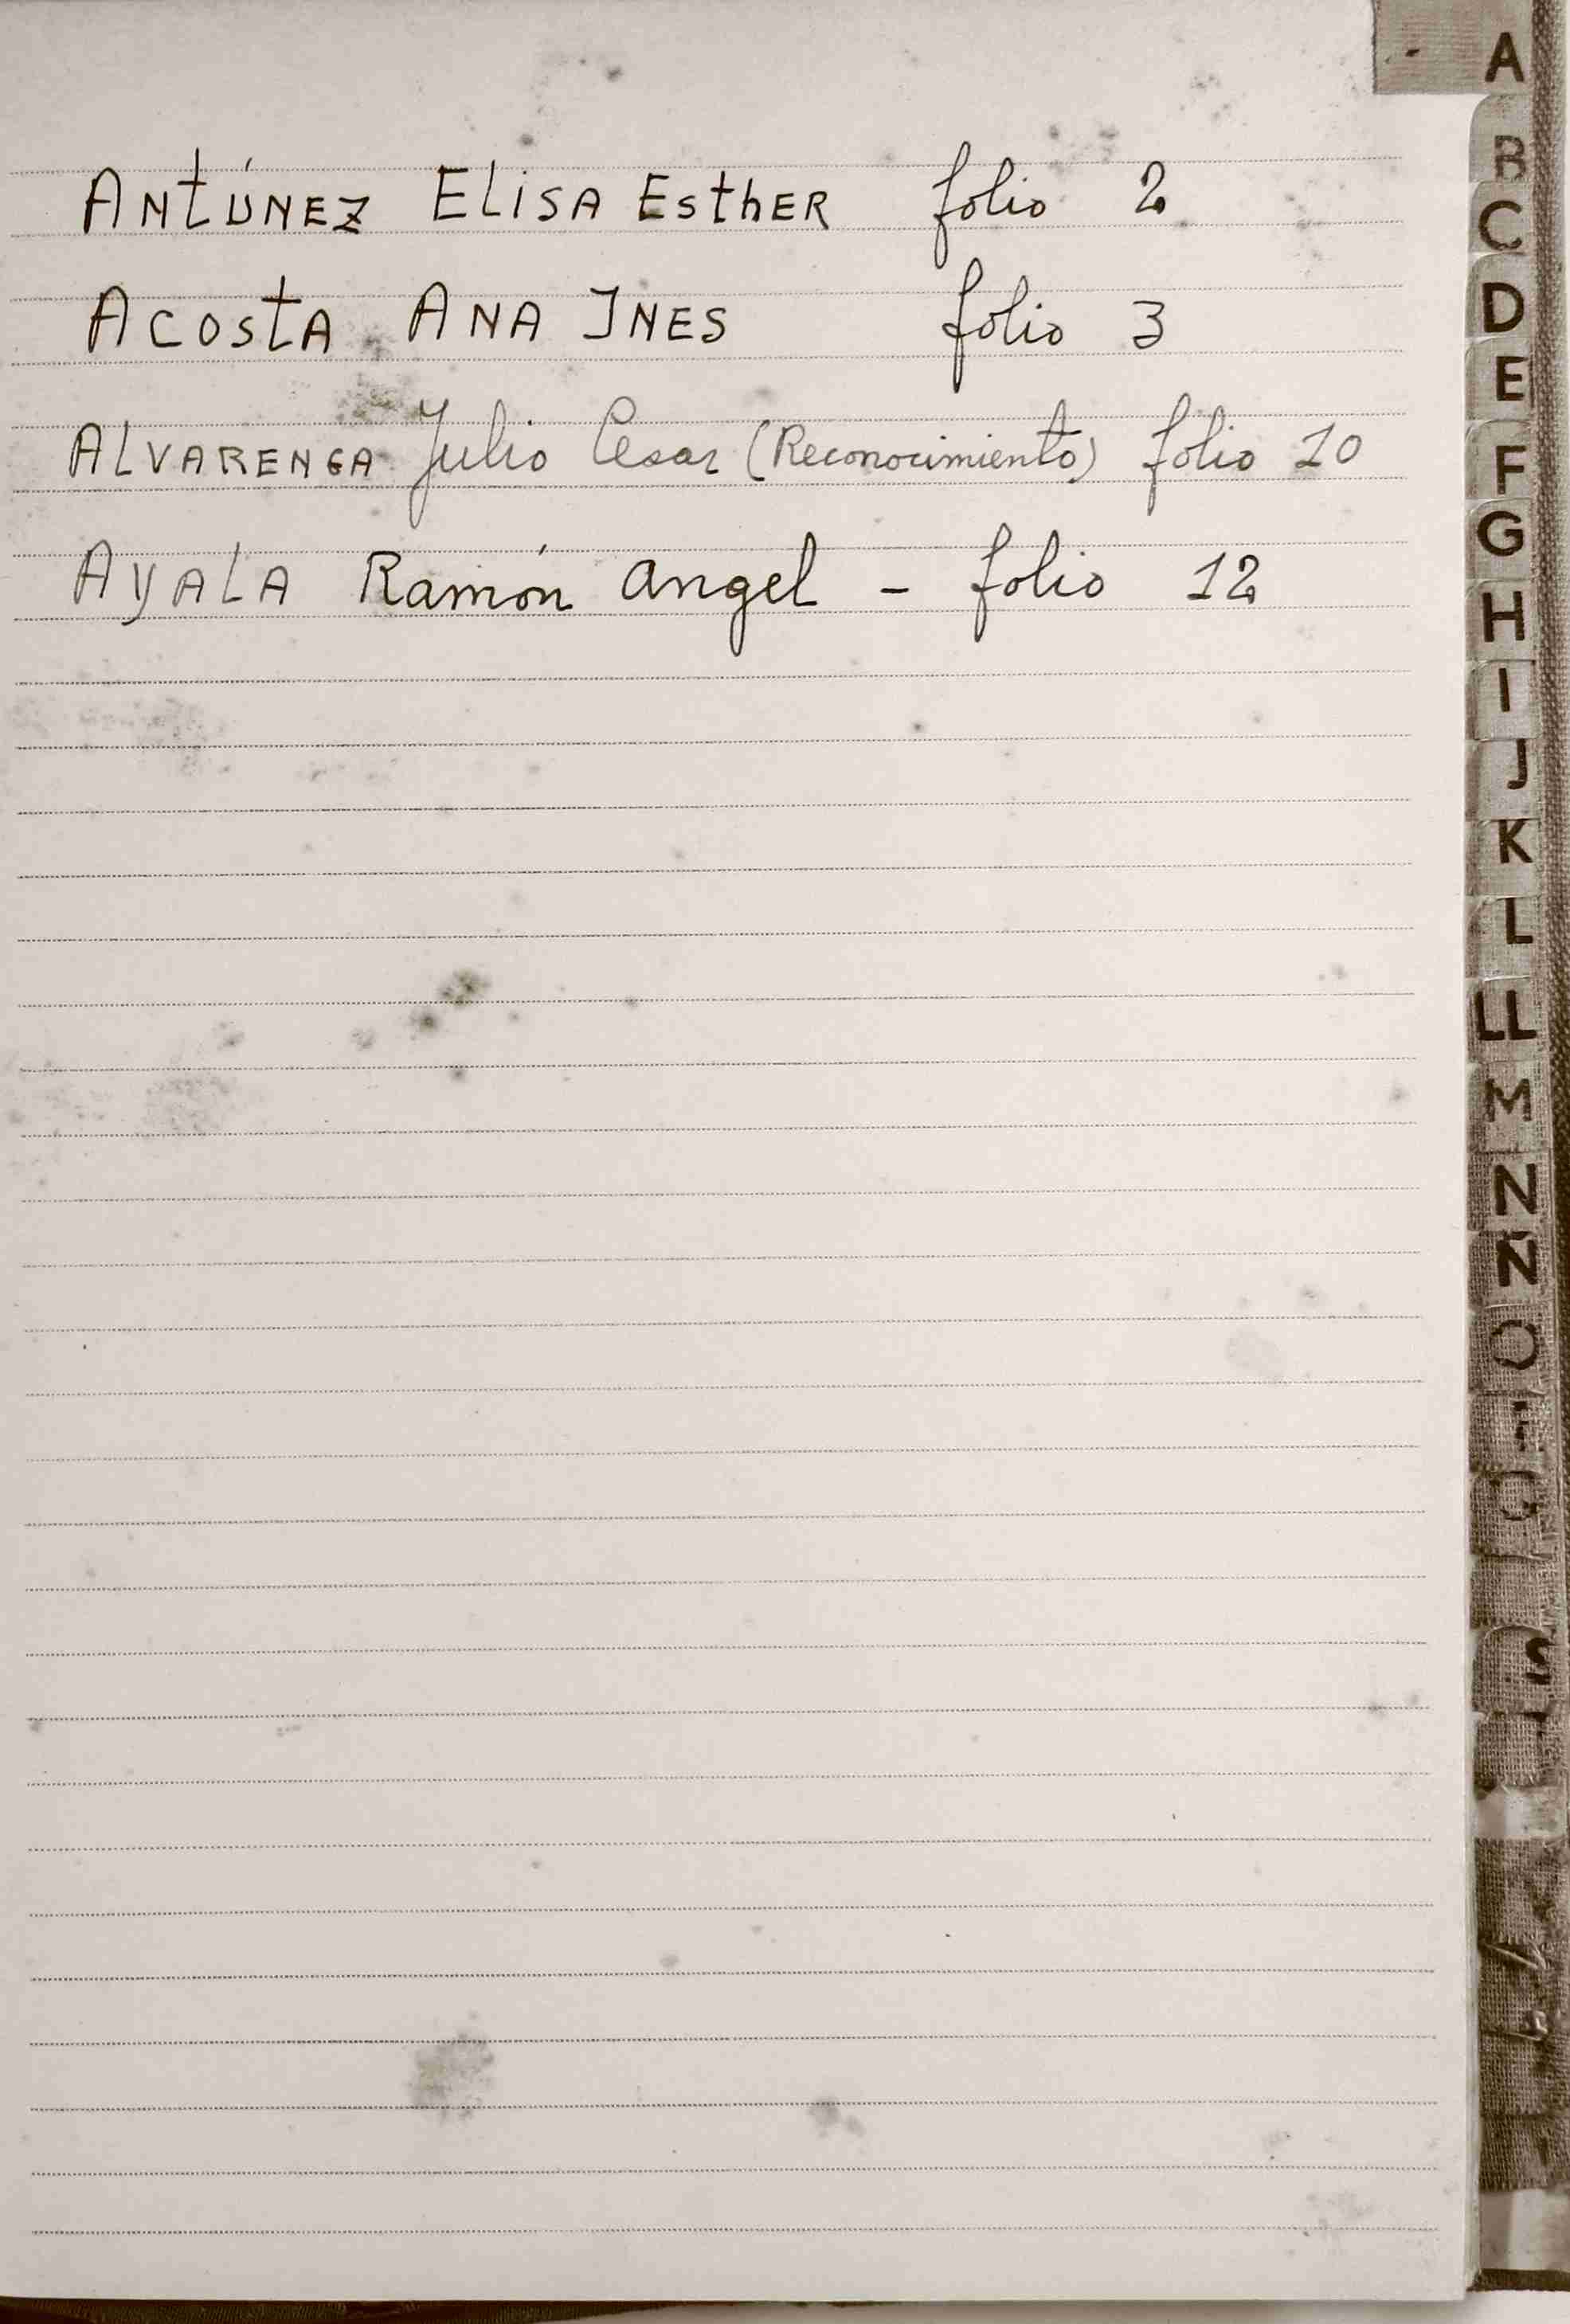 Antúnez Elisa Esther folio 2
Acosta Ana Ines folio 3
ALVARENGA Julio Cesar (Reconocimiento) folio 10
Ayala Ramón Angel - folio 12
A
B
C
D
E
F
G
H
I
J
K
L
LL
M
N
Ñ
O
Q
S